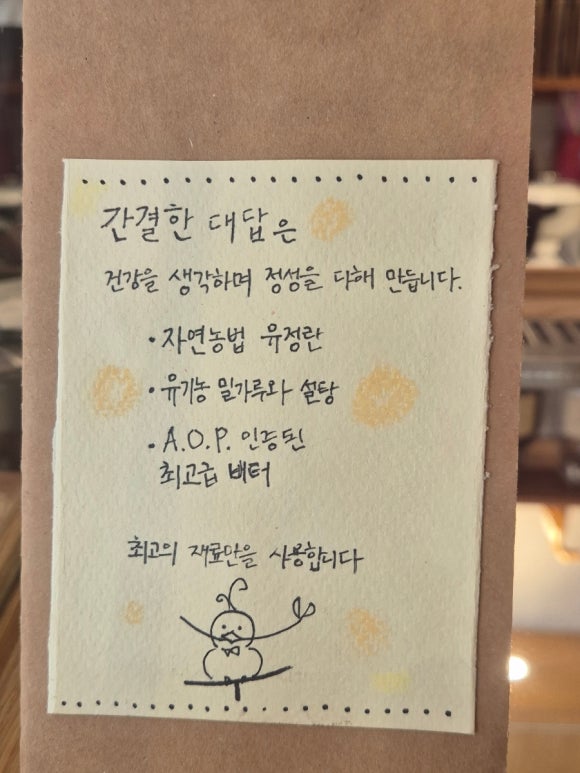 간결한 대답은
건강을 생각하며 정성을 다해 만듭니다.
• 자연농법 유정란
• 유기농 밀가루와 설탕
• A.O.P. 인증된
최고급 버터
최고의 재료만을 사용합니다